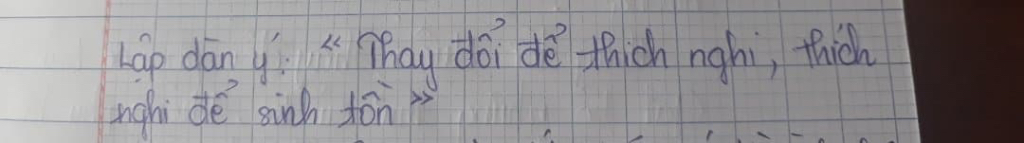 Lập dàn ý: « Thay đổi để thích nghi, thích
nghi để sinh tồn »